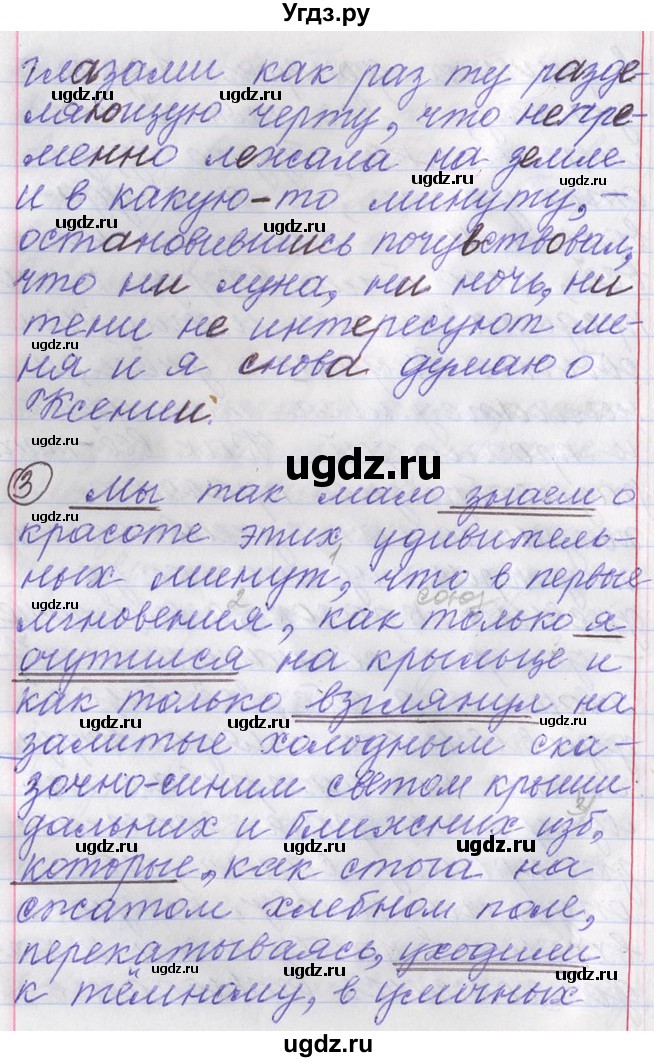 Угдз.ру
глазами как раз ту разде-
ляющую черту, что непре-
менно лежала на земле
и в какую-то минуту, –
остановившись почувствовал,
что ни луна, ни ночь, ни
тени не интересуют ме-
ня и я снова думаю о
Ксении.
ugdz.ru
3 Мы так мало знаем о
красоте этих удивитель-
ных минут, что в первые
мгновения, как только я
союз
очутился на крыльце и
как только взглянул на
залитые холодным ска-
зочно-синим светом крыши
дальних и ближних изб,
которые, как стога на
сжатом хлебном поле,
перекатываясь, уходили
к тёмному, в уличных
©ugdz.ru